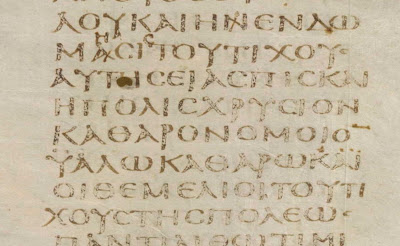 ΛΟΥΚΑΙΗΝΕΝΔΩ
ΜΑϹΙΤΟΥΤΙΧΟΥ·
ΑΥΤΗϹΕΙΑϹΠΙϹΚΑΙ
ΗΠΟΛΙϹΧΡΥϹΙΟΝ
ΚΑΘΑΡΟΝΟΜΟΙΟ
ΫΑΛΩΚΑΘΑΡΩΚΑΪ
ΟΙΘΕΜΕΛΙΟΙΤΟΥΤΙ
ΧΟΥϹΤΗϹΠΟΛΕΩ
ΠΑΝΤΙΛΙΘΩΤΙΜΙ